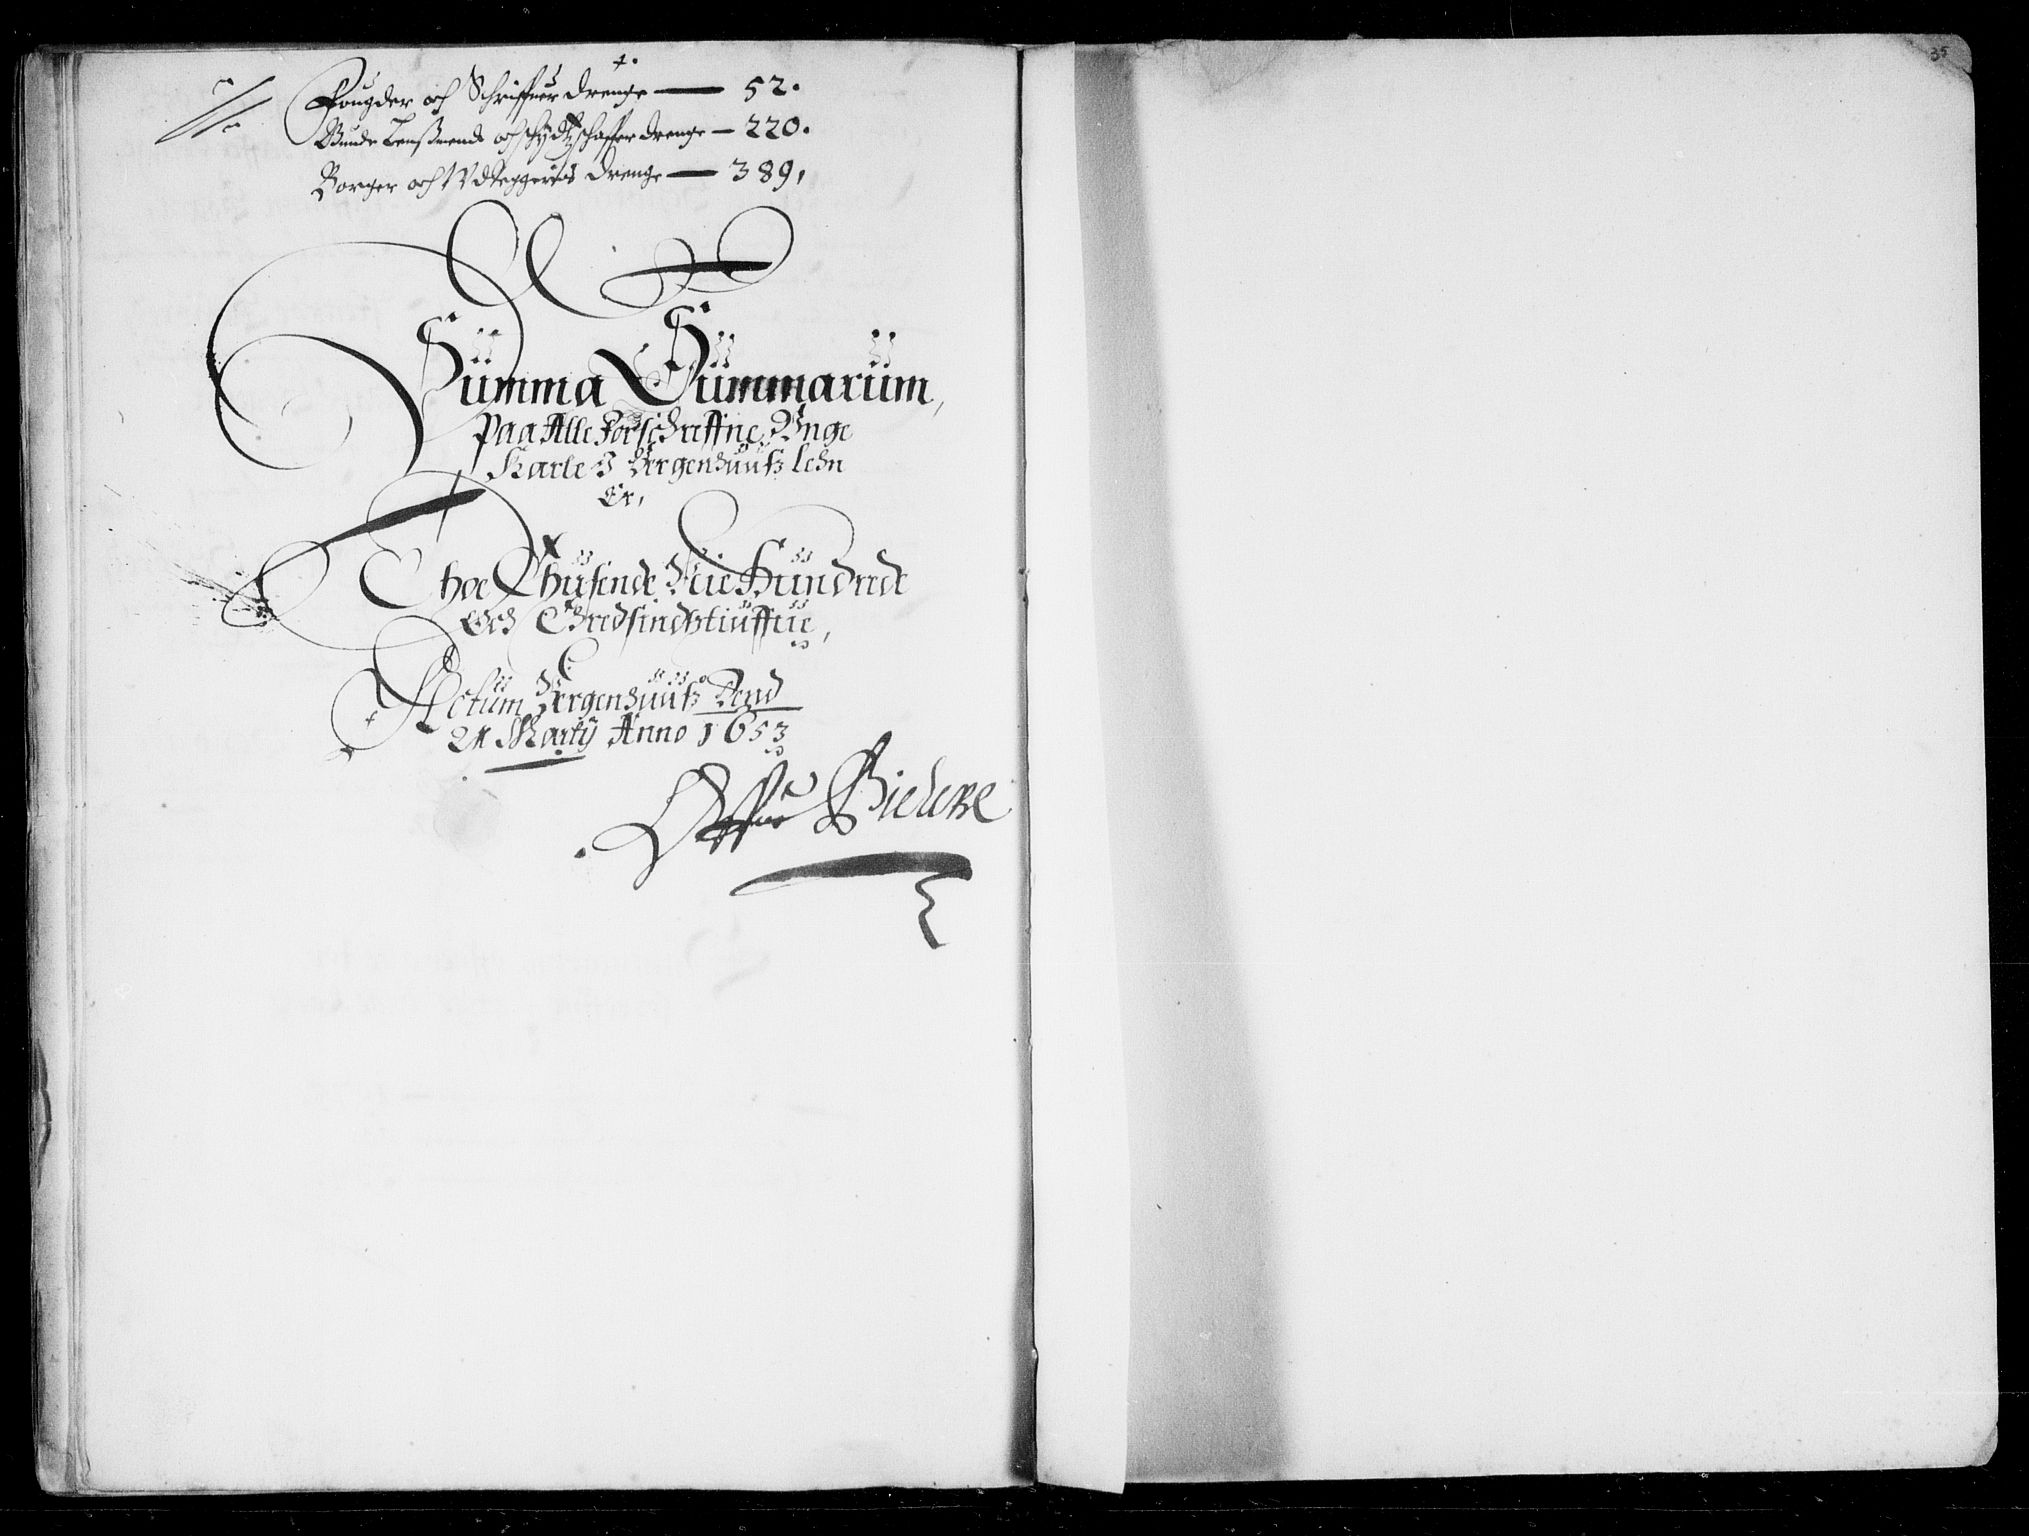 35
Fougder och Schriffuer drenge — 52.
Bunde Lenßmends och schydtzschaffer drenge — 220.
Borger och Vdreggeris drenge — 389,
Summa Summarum,
Paa Alle Forschreffne Vnge
Karle I Bergenhuuß lehn
Er,
Thoe Thusende Nie Hundrede
Och Thredsindtztiuffue,
Actum Bergenhuuß Dend
21 Martij Anno 1653
Offue Bielcke